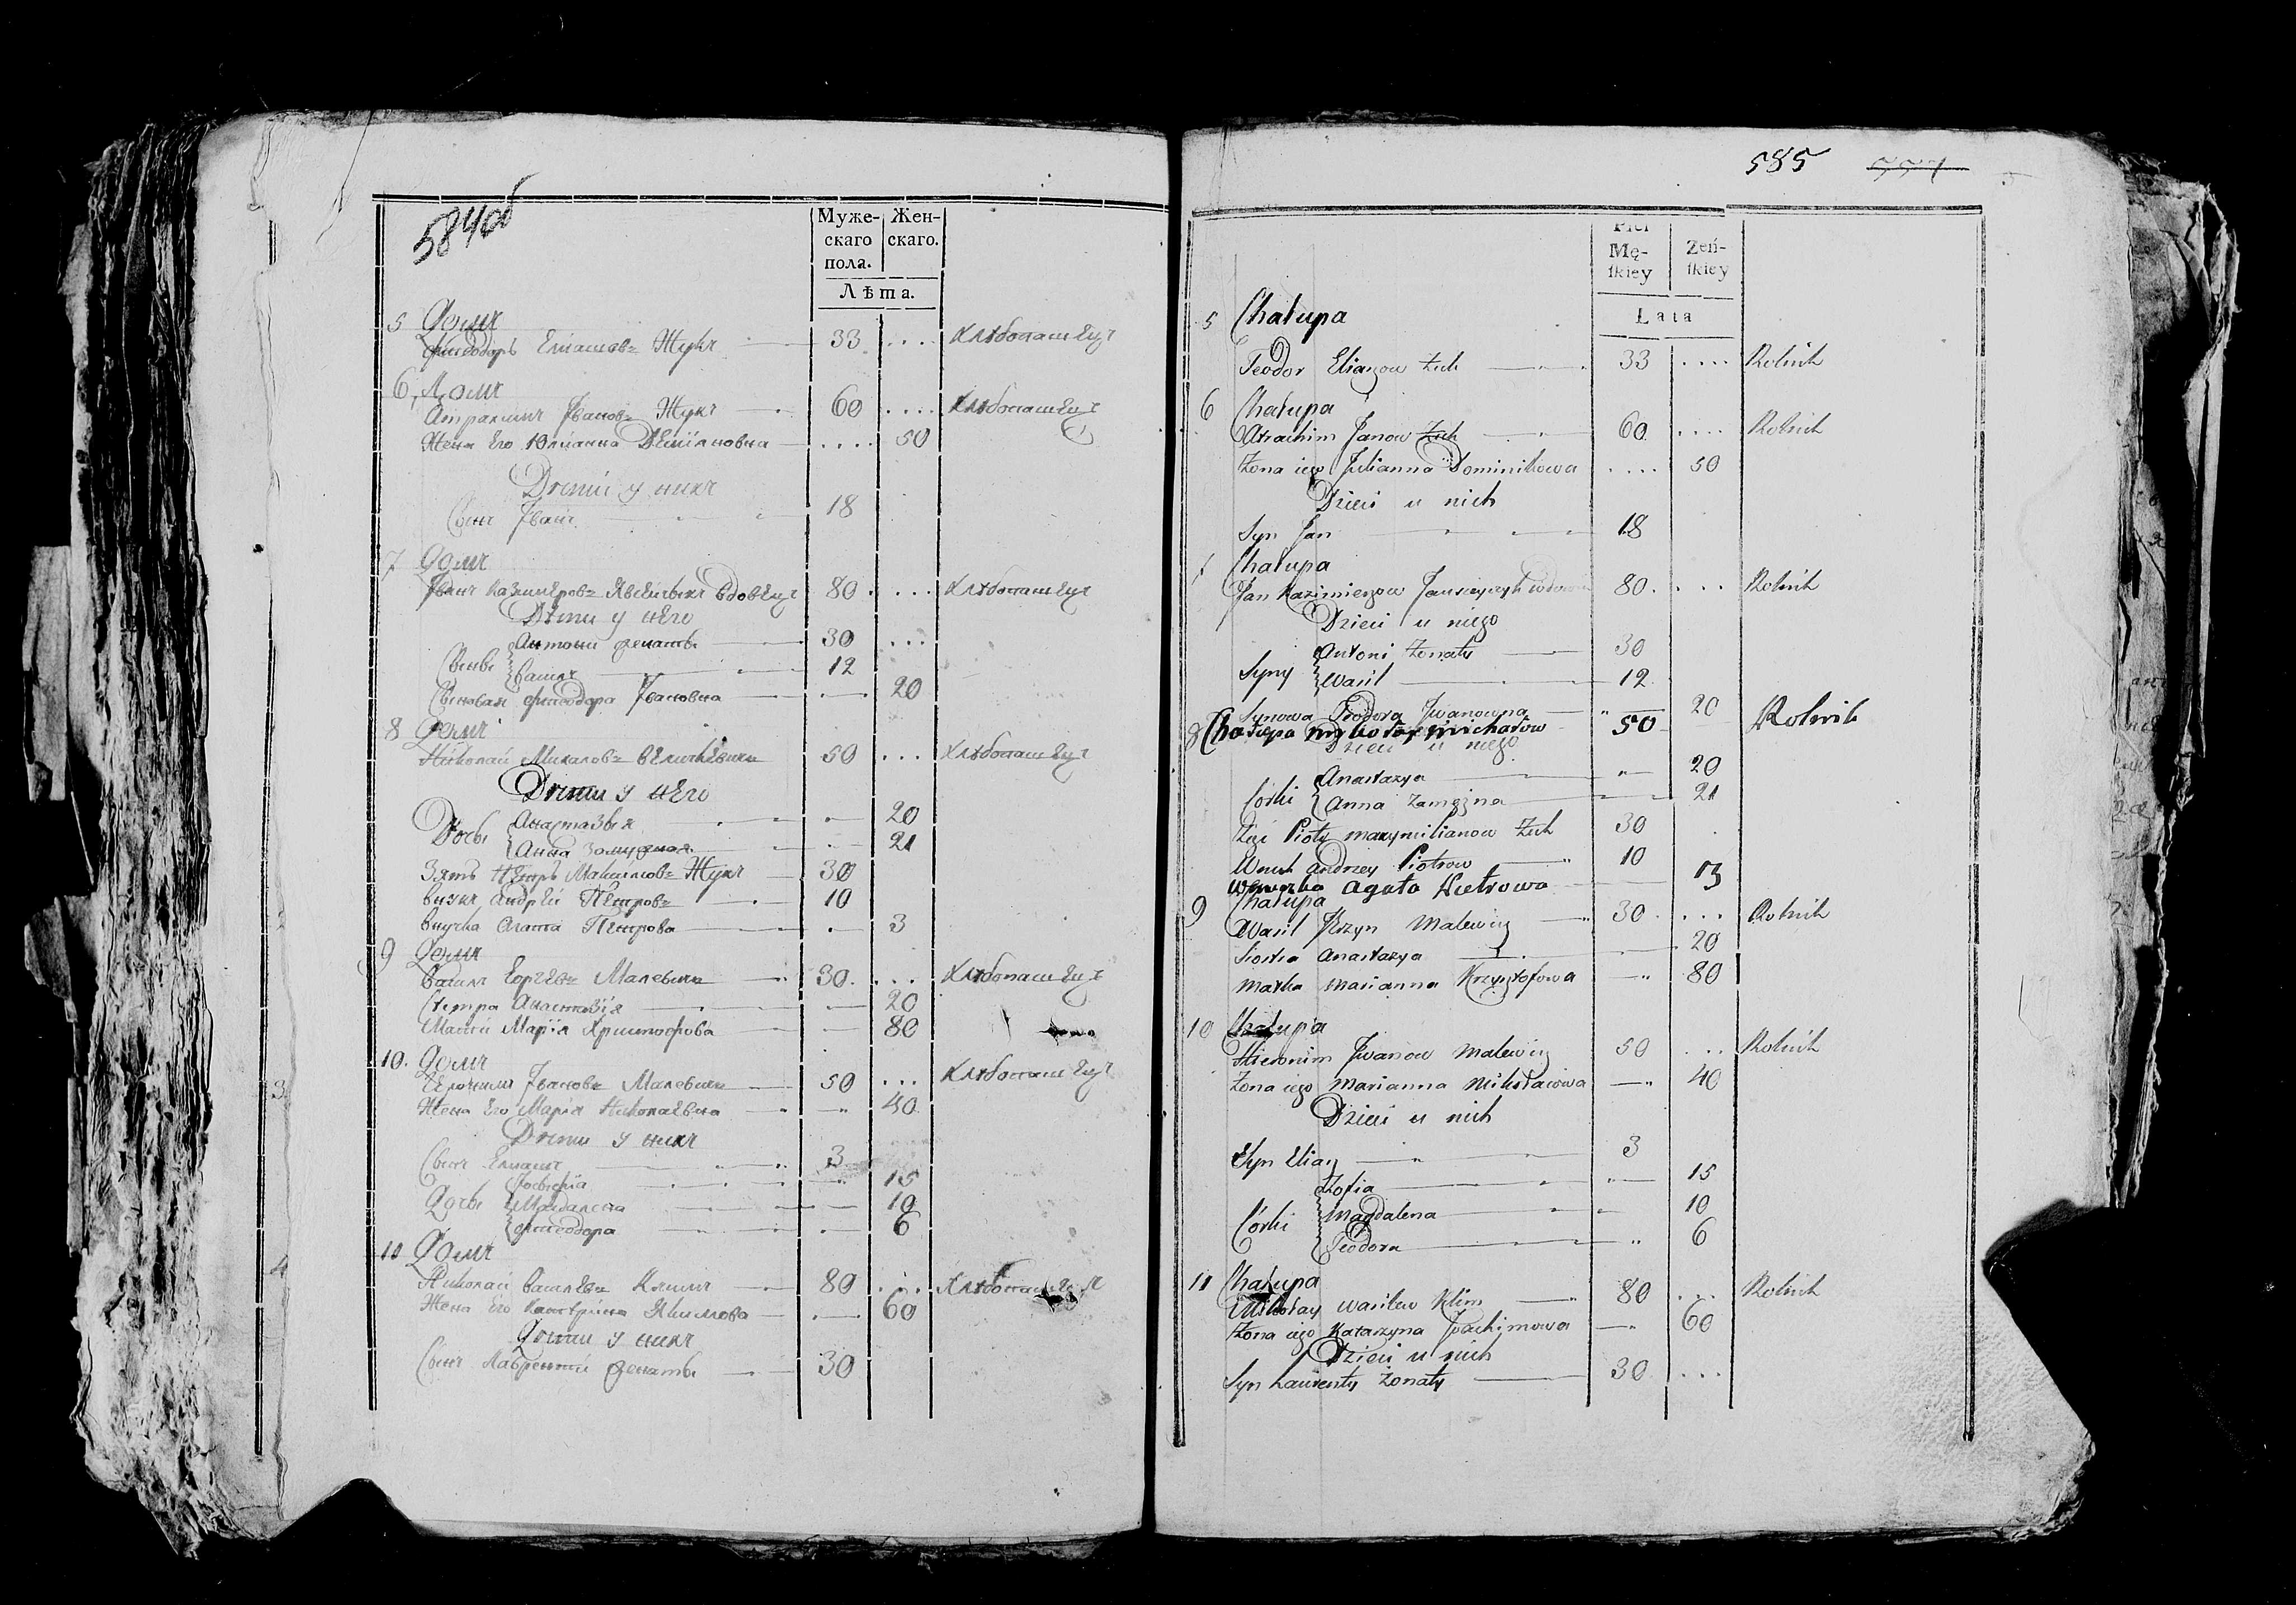 584об
Муже- Жен-
скаго скаго.
пола.
Лѣта.
5 Домъ
Фиеодоръ Елиашовъ Жукъ 33 .... Хлѣбопашецъ
6, Домъ
Атрахимъ Ивановъ Жукъ 60 .... Хлѣбопашецъ
Жена Его Юлианна .... 50
Дѣти у нихъ
Сынъ Иванъ 18
7 Домъ
Иванъ Казимѣровъ вдовецъ 80 .... Хлѣбопашецъ
Дѣти у него
Сыны Антони женаты 30 ...
Василъ 12
Сыновая Фиеодора Ивановна 20
8 Домъ
Николай Михаловъ 50 ... Хлѣбопашецъ
Дѣти у него
Дочы Анастазыя 20
Анна Замужная 21
Зять Петръ Жукъ 30
Андрей Петровъ 10
Внучка Агата Петрова 3
9 Домъ
Василъ Малевичъ 30 ... Хлѣбопашецъ
Сестра 20
Марія Христофорова 80
10. Домъ
Ивановъ Малевичъ 50 ... Хлѣбопашецъ
Жена Его Марія Николаевна 40
Дѣти у нихъ
Сынъ Елиашъ 3
15
Дочы Магдалена 10
Фиеодора 6
11 Домъ
Николай Василевъ Климъ 80 ... Хлѣбопашецъ
Жена Его 60
Дѣти у нихъ
Сынъ Лаврентий женаты 30
585 557
Płci
Mę- Żeń-
ſkiey ſkiey
Lata
5 Chałupa
Teodor Eliaszow Żuk 33 .... Rolnik
6 Chałupa
Atrachim Janow Żuk 60 .... Rolnik
Żona iego Julianna Dominikowa .... 50
Dzieci u nich
Syn Jan 18
7 Chałupa
Jan Kazimierzow 80 .... Rolnik
Dzieci u niego
Syny Antoni Żonaty 30
Wasil 12
Synowa Teodora Jwanowna 20
8 Chałupa Mikołay Michałow 50 Rolnik
Dzieci u niego
Córki Anastazya 20
Anna Zamężna 21
Zięć Piotr Maxymilianow Żuk 30
Wnuk Andrzey Piotrow 10
Agata 3
9 Chałupa
Wasil Malewicz 30 ... Rolnik
Siostra Anastazya 20
Matka Marianna Krzysztofowa 80
10 Chałupa
Hieronim Jwanow Malewicz 50 ... Rolnik
Żona iego Marianna Mikołaiowa 40
Dzieci u nich
Syn Eliasz 3
Zofia 15
Córki Magdalena 10
Teodora 6
11 Chałupa
Mikołay Wasilew Klim 80 ... Rolnik
Żona iego Katarzyna Joachimowa 60
Dzieci u nich
Syn Laurenty Żonaty 30 ...